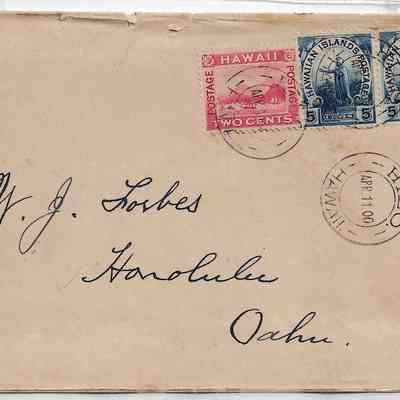 HAWAII
POSTAGE
POSTAGE
TWO CENTS
HAWAIIAN ISLANDS POSTAGE
5 5
5
HILO
APR 11 00
HAWAII
W. J. Forbes
Honolulu
Oahu.